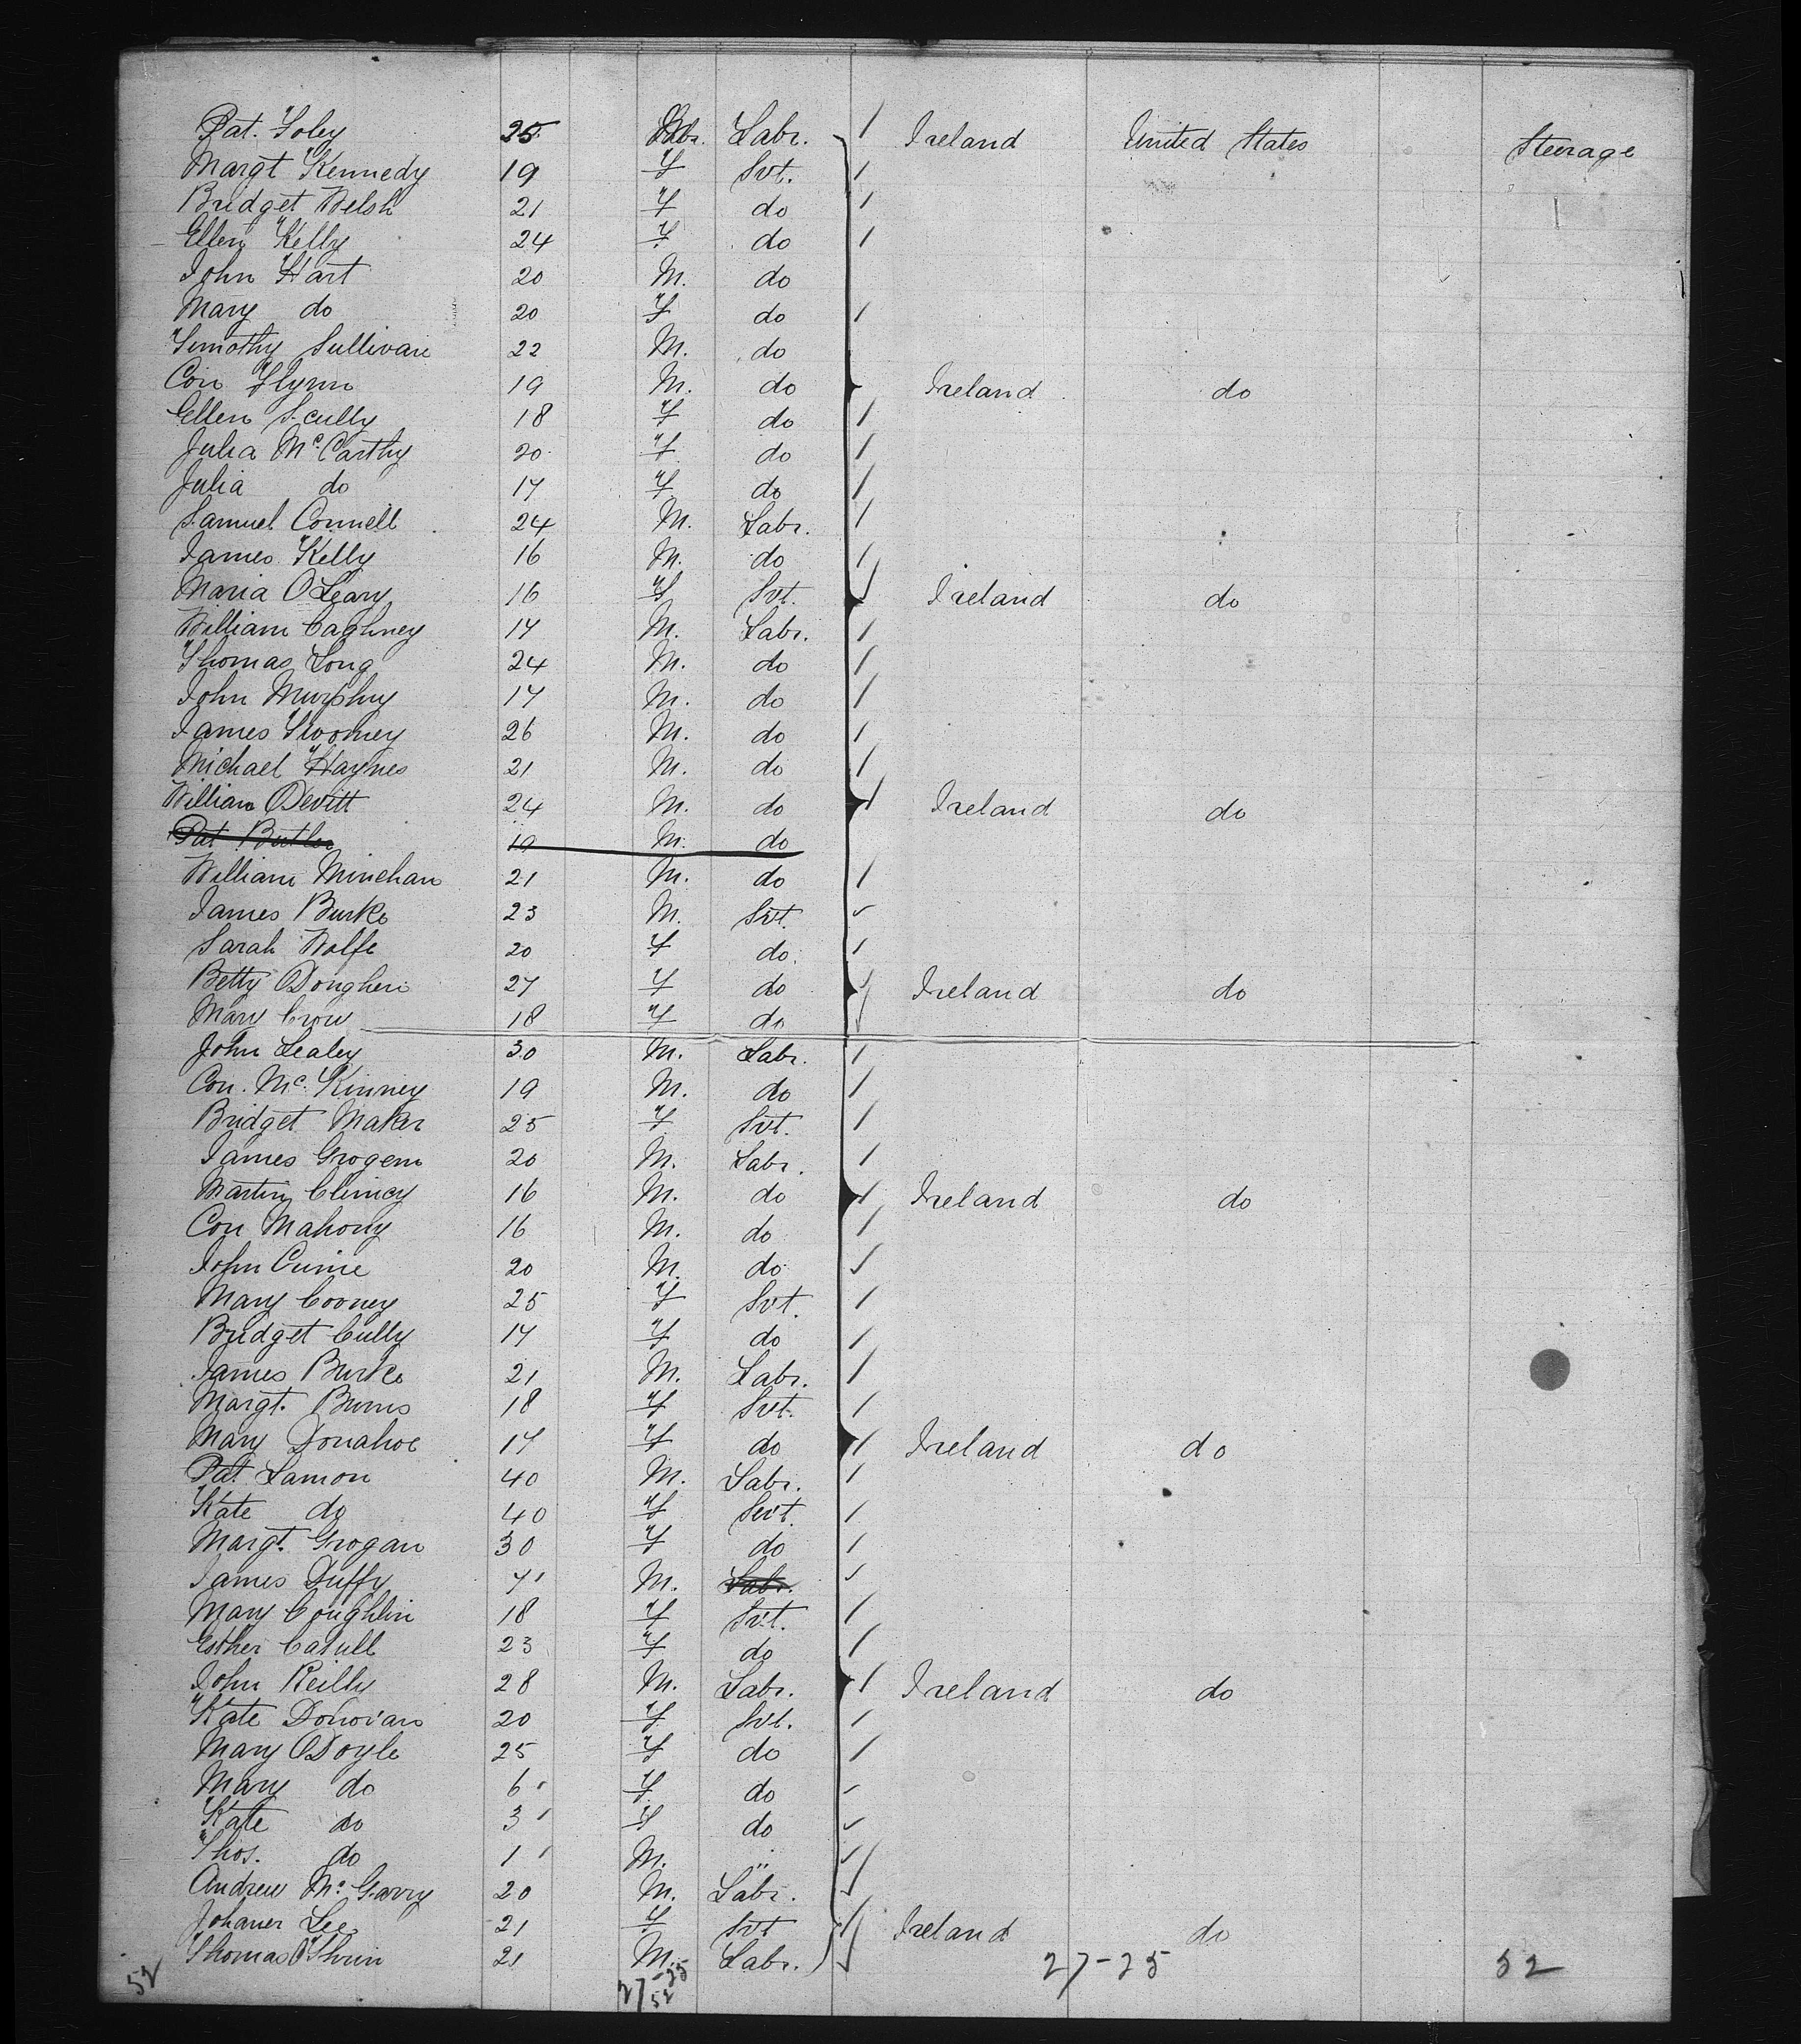 Pat. Foley 25 Labr. Ireland United States Steerage
Margt Kennedy 19 F Svt.
Bridget Welsh 21 F do
Ellen Kelly 24 F do
John Hart 20 M. do
Mary do 20 F do
Timothy Sullivan 22 M. do
Con Flynn 19 M. do Ireland do
Ellen Scully 18 F do
Julia McCarthy 20 F do
Julia do 17 F do
Samuel Connell 24 M. Labr.
James Kelly 16 M. do
Maria OLeary 16 F Svt. Ireland do
William Caghney 17 M. Labr.
Thomas Long 24 M. do
John Murphy 17 M. do
James Twomey 26 M. do
Michael Haynes 21 M. do
William Devitt 24 M. do Ireland do
Pat Butler 19 M. do
William Minehan 21 M. do
James Burke 23 M. Svt.
Sarah Wolfe 20 F do
Betty ODongheri 27 F do Ireland do
Mary Crow 18 F do
John Lealey 30 M. Labr.
Con. Mc.Kinney 19 M. do
Bridget Maker 25 F Svt.
James Grogem 20 M. Labr.
Martin Clincy 16 M. do Ireland do
Con Mahony 16 M. do
John 20 M. do
Mary Cooney 25 F Svt
Bridget Cully 17 F do
James Burke 21 M. Labr.
Margt. Burns 18 F Svt.
Mary Donahoe 17 F do Ireland do
Pat. Lamon 40 M. Labr.
Kate do 40 F Svt.
Margt. Grogan 30 F do
James Duffy 7 M. Labr.
Mary Coughlin 18 F Svt.
Esther Cahill 23 F do
John Reilly 28 M. Labr. Ireland do
Kate Donovan 20 F Svt.
Mary ODoyle 25 F do
Mary do 6 F do
Kate do 3 F do
Thos. do 1 M. "
Andrew Mc.Garry 20 M. Labr.
Johaner Lee 21 F Svt Ireland do
Thomas 21 M. Labr.
52 27-25 27-25 52
52